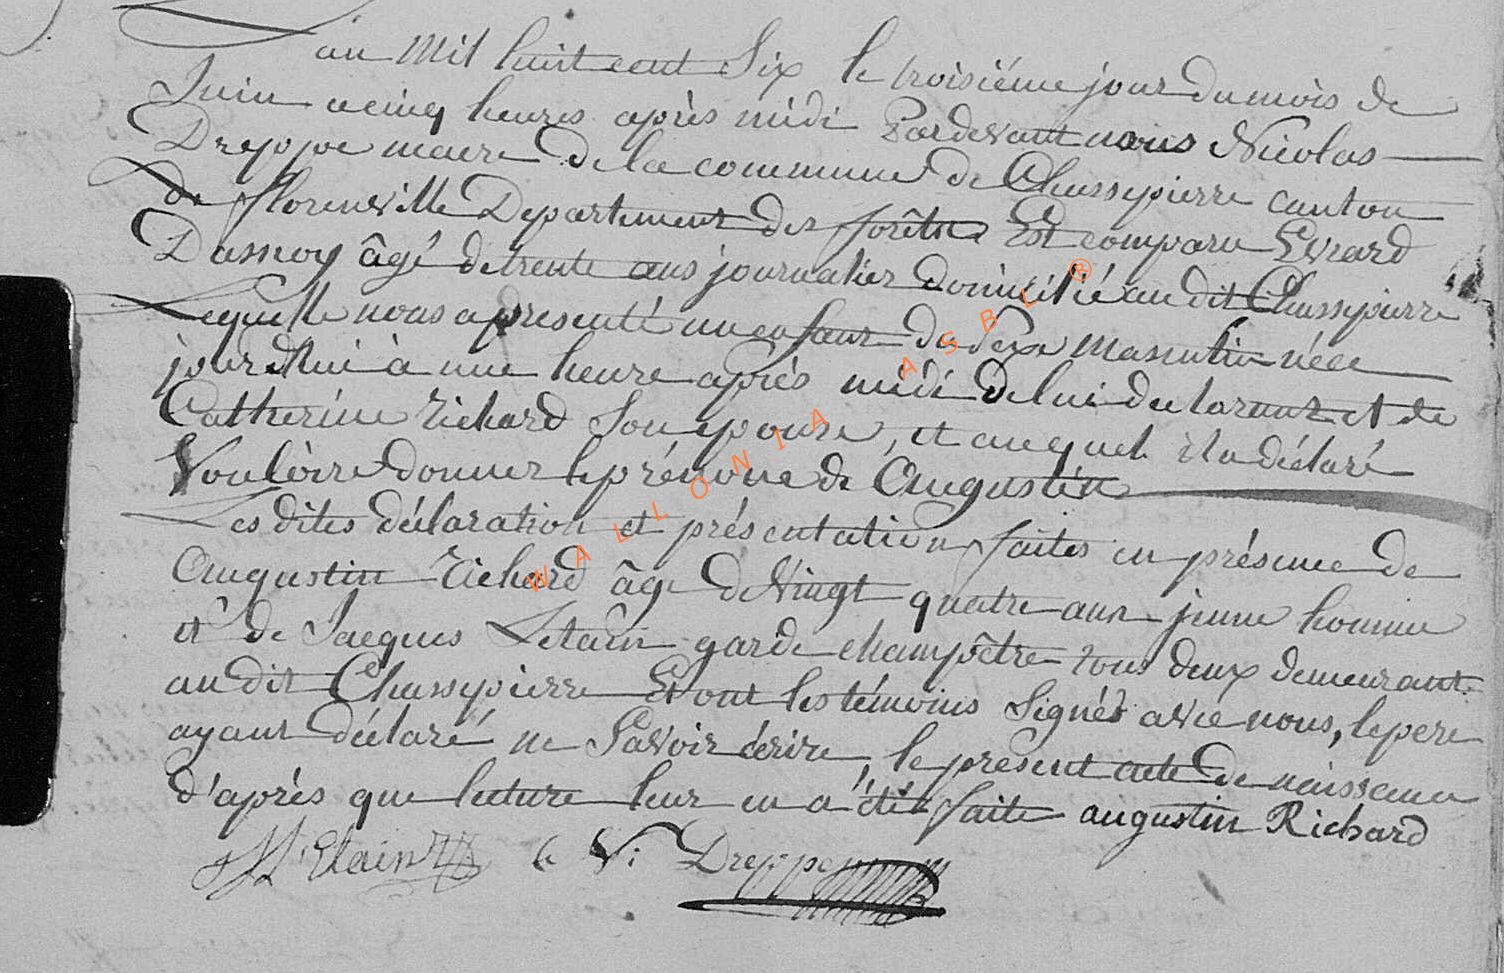 Lan Mil huit cent Six le troisiéme jour du mois de
Juin a cinq heures après midi Pardevant nous Nicolas
Dreppe maire de la commune de Chassepierre canton
de florenville Departement des forêtse Est comparu Evrard
Dasnoy âgé de trente ans journalier domicilié audit Chassepierre
Lequelle nous a presenté un enfant de sexe masculin néee
jourdhui à une heure après midi de lui declarant et de
Catherine Richard Son epouse, et auquel il a déclaré
Voulòire donner le prénome de Augustin
Les dites déclaration et présentation faites en présence de
Augustin Richard âge de Vingt quatre ans jeune homme
et de Jacques Letain garde champêtre tous deux demeurant
audit Chassepierre Et ont les témoins Signés avec nous, le pere
ayant déclaré ne Savoir écrire, le présent acte de naissance
d'après que lecture leur en a été faite augustin Richard
Dreppe
WALLONIA ASBL ®